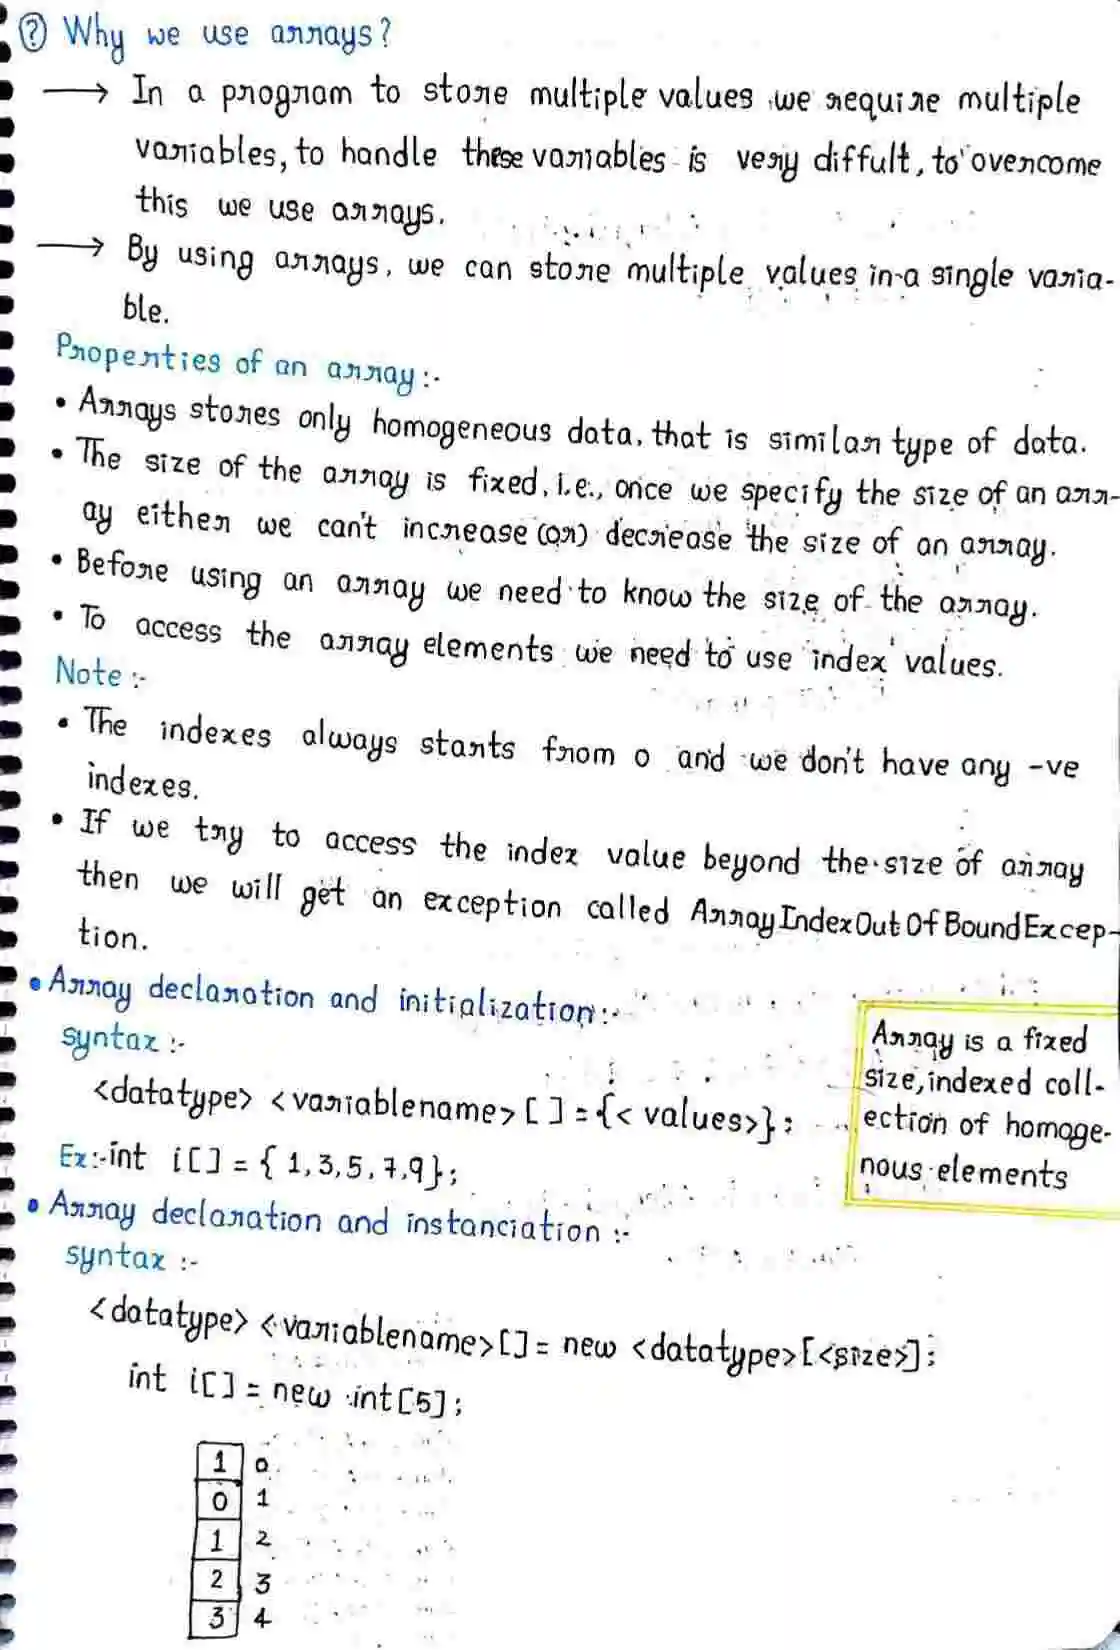 ? Why we use arrays?
→ In a program to store multiple values we require multiple
variables, to handle these variables is very diffult, to overcome
this we use arrays.
→ By using arrays, we can store multiple values in a single varia-
ble.
Properties of an array :-
• Arrays stores only homogeneous data, that is similar type of data.
• The size of the array is fixed, i.e., once we specify the size of an arr-
ay either we can't increase (or) decrease the size of an array.
• Before using an array we need to know the size of the array.
• To access the array elements we need to use index values.
Note :-
• The indexes always starts from 0 and we don't have any -ve
indexes.
• If we try to access the index value beyond the size of array
then we will get an exception called ArrayIndexOutOfBoundExcep-
tion.
• Array declaration and initialization :-
syntax :-
<datatype> <variablename> [ ] = {< values>};
Ex:- int i[] = { 1, 3, 5, 7, 9};
Array is a fixed
size, indexed coll-
ection of homoge-
nous elements
• Array declaration and instanciation :-
syntax :-
<datatype> <variablename>[] = new <datatype>[<size>];
int i[] = new int[5];
1 0
0 1
1 2
2 3
3 4